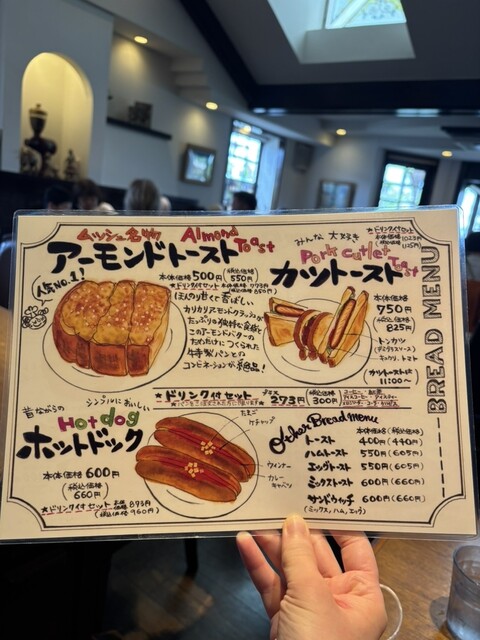 ムッシュ名物 Almond Toast
アーモンドトースト
人気No.1!
本体価格 500円 (税込価格) 550円
★ドリンク付セット 本体価格 773円
(税込価格) 850円
ほんのり甘くて香ばしい
カリカリアーモンドクラッシュが
たっぷりの独特な食感と
このアーモンドバターの
ためだけにつくられた
特製パンとの
コンビネーションが
みんな大好き
Pork Cutlet Toast
カツトースト
★ドリンク付セット
本体価格 1023円
1125円
本体価格
750円
(税込価格)
825円
トンカツ
(デミグラスソース)
キュウリ、トマト
カツトーストは
11:00~
BREAD MENU
★ドリンク付セット プラス 273円 税込価格 300円
コーヒー 紅茶
アイスコーヒー アイスティー
昔ながらの シンプルにおいしい
Hotdog
ホットドック
本体価格 600円
(税込価格)
660円
★ドリンク付セット 本体価格 873円
(税込価格) 960円
たまご
ケチャップ
ウインナー
カレー
キャベツ
Other Bread Menu
本体価格 (税込価格)
トースト 400円 (440円)
ハムトースト 550円 (605円)
エッグトースト 550円 (605円)
ミックストースト 600円 (660円)
サンドウィッチ 600円 (660円)
(ミックス, ハム, エッグ)